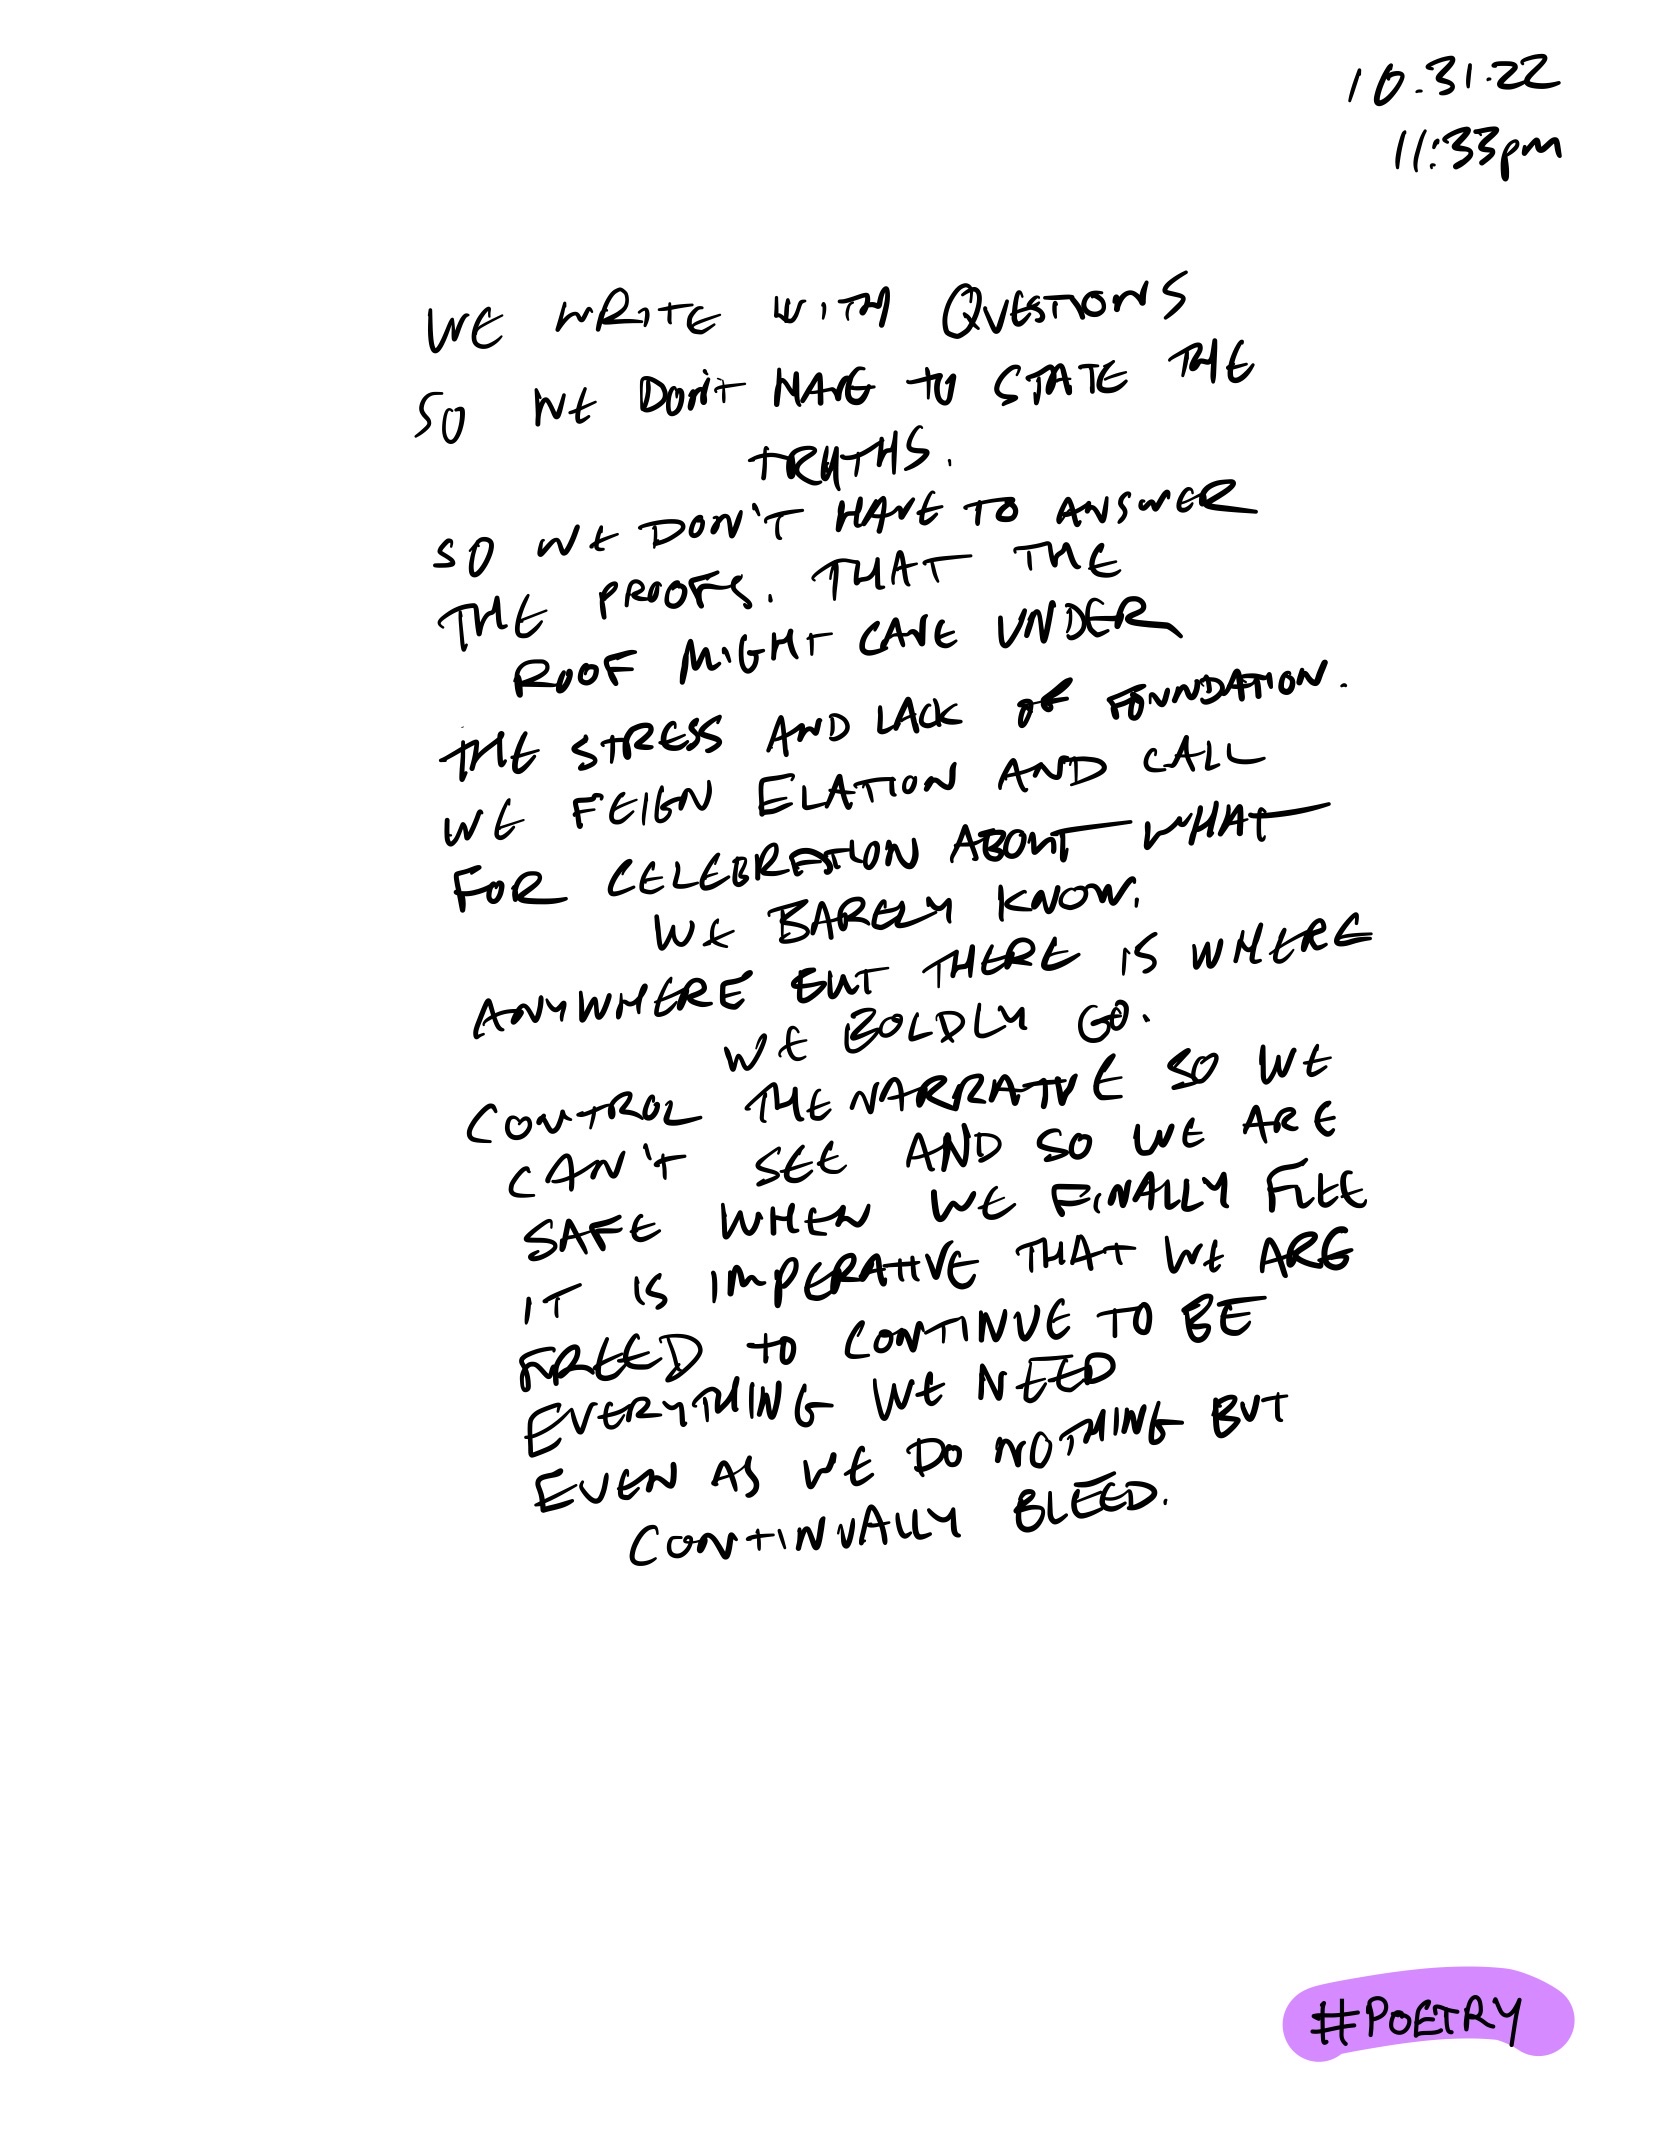 10.31.22
11:33pm
WE WRITE WITH QUESTIONS
SO WE DON'T HAVE TO STATE THE
TRUTHS.
SO WE DON'T HAVE TO ANSWER
THE PROOFS. THAT THE
ROOF MIGHT CAVE UNDER
THE STRESS AND LACK OF FOUNDATION.
WE FEIGN ELATION AND CALL
FOR CELEBRATION ABOUT WHAT
WE BARELY KNOW.
ANYWHERE BUT THERE IS WHERE
WE BOLDLY GO.
CONTROL THE NARRATIVE SO WE
CAN'T SEE AND SO WE ARE
SAFE WHEN WE FINALLY FLEE
IT IS IMPERATIVE THAT WE ARE
FREED TO CONTINUE TO BE
EVERYTHING WE NEED
EVEN AS WE DO NOTHING BUT
CONTINUALLY BLEED.
#POETRY